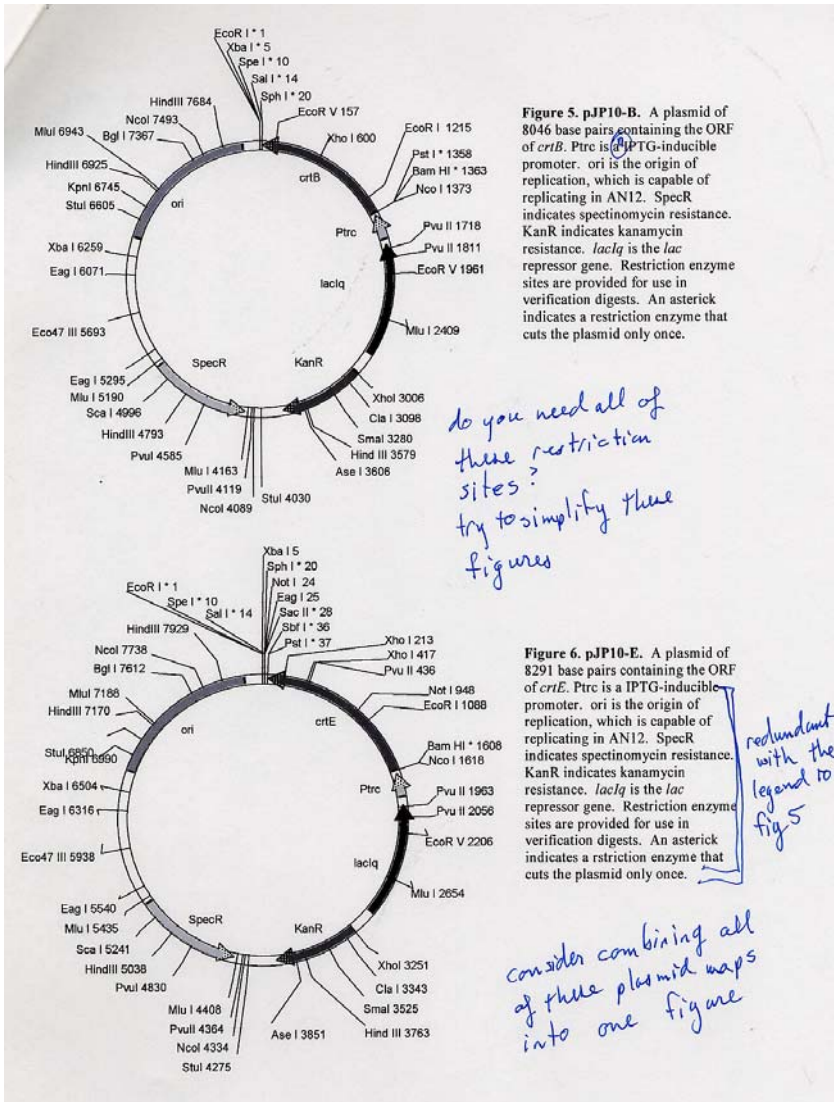 EcoR I * 1
Xba I * 5
Spe I * 10
Sal I * 14
Sph I * 20
EcoR V 157
Xho I 600
EcoR I 1215
Pst I * 1358
Bam HI * 1363
Nco I 1373
Pvu II 1718
Pvu II 1811
EcoR V 1961
Mlu I 2409
XhoI 3006
Cla I 3098
SmaI 3280
Hind III 3579
Ase I 3606
StuI 4030
NcoI 4089
PvuII 4119
Mlu I 4163
PvuI 4585
HindIII 4793
Sca I 4996
Mlu I 5190
Eag I 5295
Eco47 III 5693
Eag I 6071
Xba I 6259
StuI 6605
KpnI 6745
HindIII 6925
MluI 6943
Bgl I 7367
NcoI 7493
HindIII 7684
crtB
Ptrc
lacIq
KanR
SpecR
ori
Figure 5. pJP10-B. A plasmid of
8046 base pairs containing the ORF
of crtB. Ptrc is a IPTG-inducible
n
promoter. ori is the origin of
replication, which is capable of
replicating in AN12. SpecR
indicates spectinomycin resistance.
KanR indicates kanamycin
resistance. lacIq is the lac
repressor gene. Restriction enzyme
sites are provided for use in
verification digests. An asterick
indicates a restriction enzyme that
cuts the plasmid only once.
do you need all of
these restriction
sites?
try to simplify these
figures
EcoR I * 1
Spe I * 10
Sal I * 14
Xba I 5
Sph I * 20
Not I 24
Eag I 25
Sac II * 28
Sbf I * 36
Pst I * 37
Xho I 213
Xho I 417
Pvu II 436
Not I 948
EcoR I 1088
Bam HI * 1608
Nco I 1618
Pvu II 1963
Pvu II 2056
EcoR V 2206
Mlu I 2654
XhoI 3251
Cla I 3343
SmaI 3525
Hind III 3763
Ase I 3851
StuI 4275
NcoI 4334
PvuII 4364
Mlu I 4408
PvuI 4830
HindIII 5038
Sca I 5241
Mlu I 5435
Eag I 5540
Eco47 III 5938
Eag I 6316
Xba I 6504
StuI 6850
KpnI 6990
HindIII 7170
MluI 7188
Bgl I 7612
NcoI 7738
HindIII 7929
crtE
Ptrc
lacIq
KanR
SpecR
ori
Figure 6. pJP10-E. A plasmid of
8291 base pairs containing the ORF
of crtE. Ptrc is a IPTG-inducible
promoter. ori is the origin of
replication, which is capable of
replicating in AN12. SpecR
indicates spectinomycin resistance.
KanR indicates kanamycin
resistance. lacIq is the lac
repressor gene. Restriction enzyme
sites are provided for use in
verification digests. An asterick
indicates a rstriction enzyme that
cuts the plasmid only once.
redundant
with the
legend to
fig 5
consider combining all
of these plasmid maps
into one figure